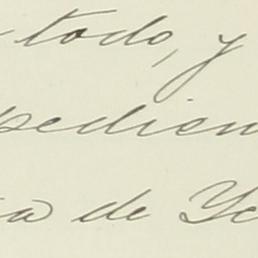 todo, y
pedien
a de Yc